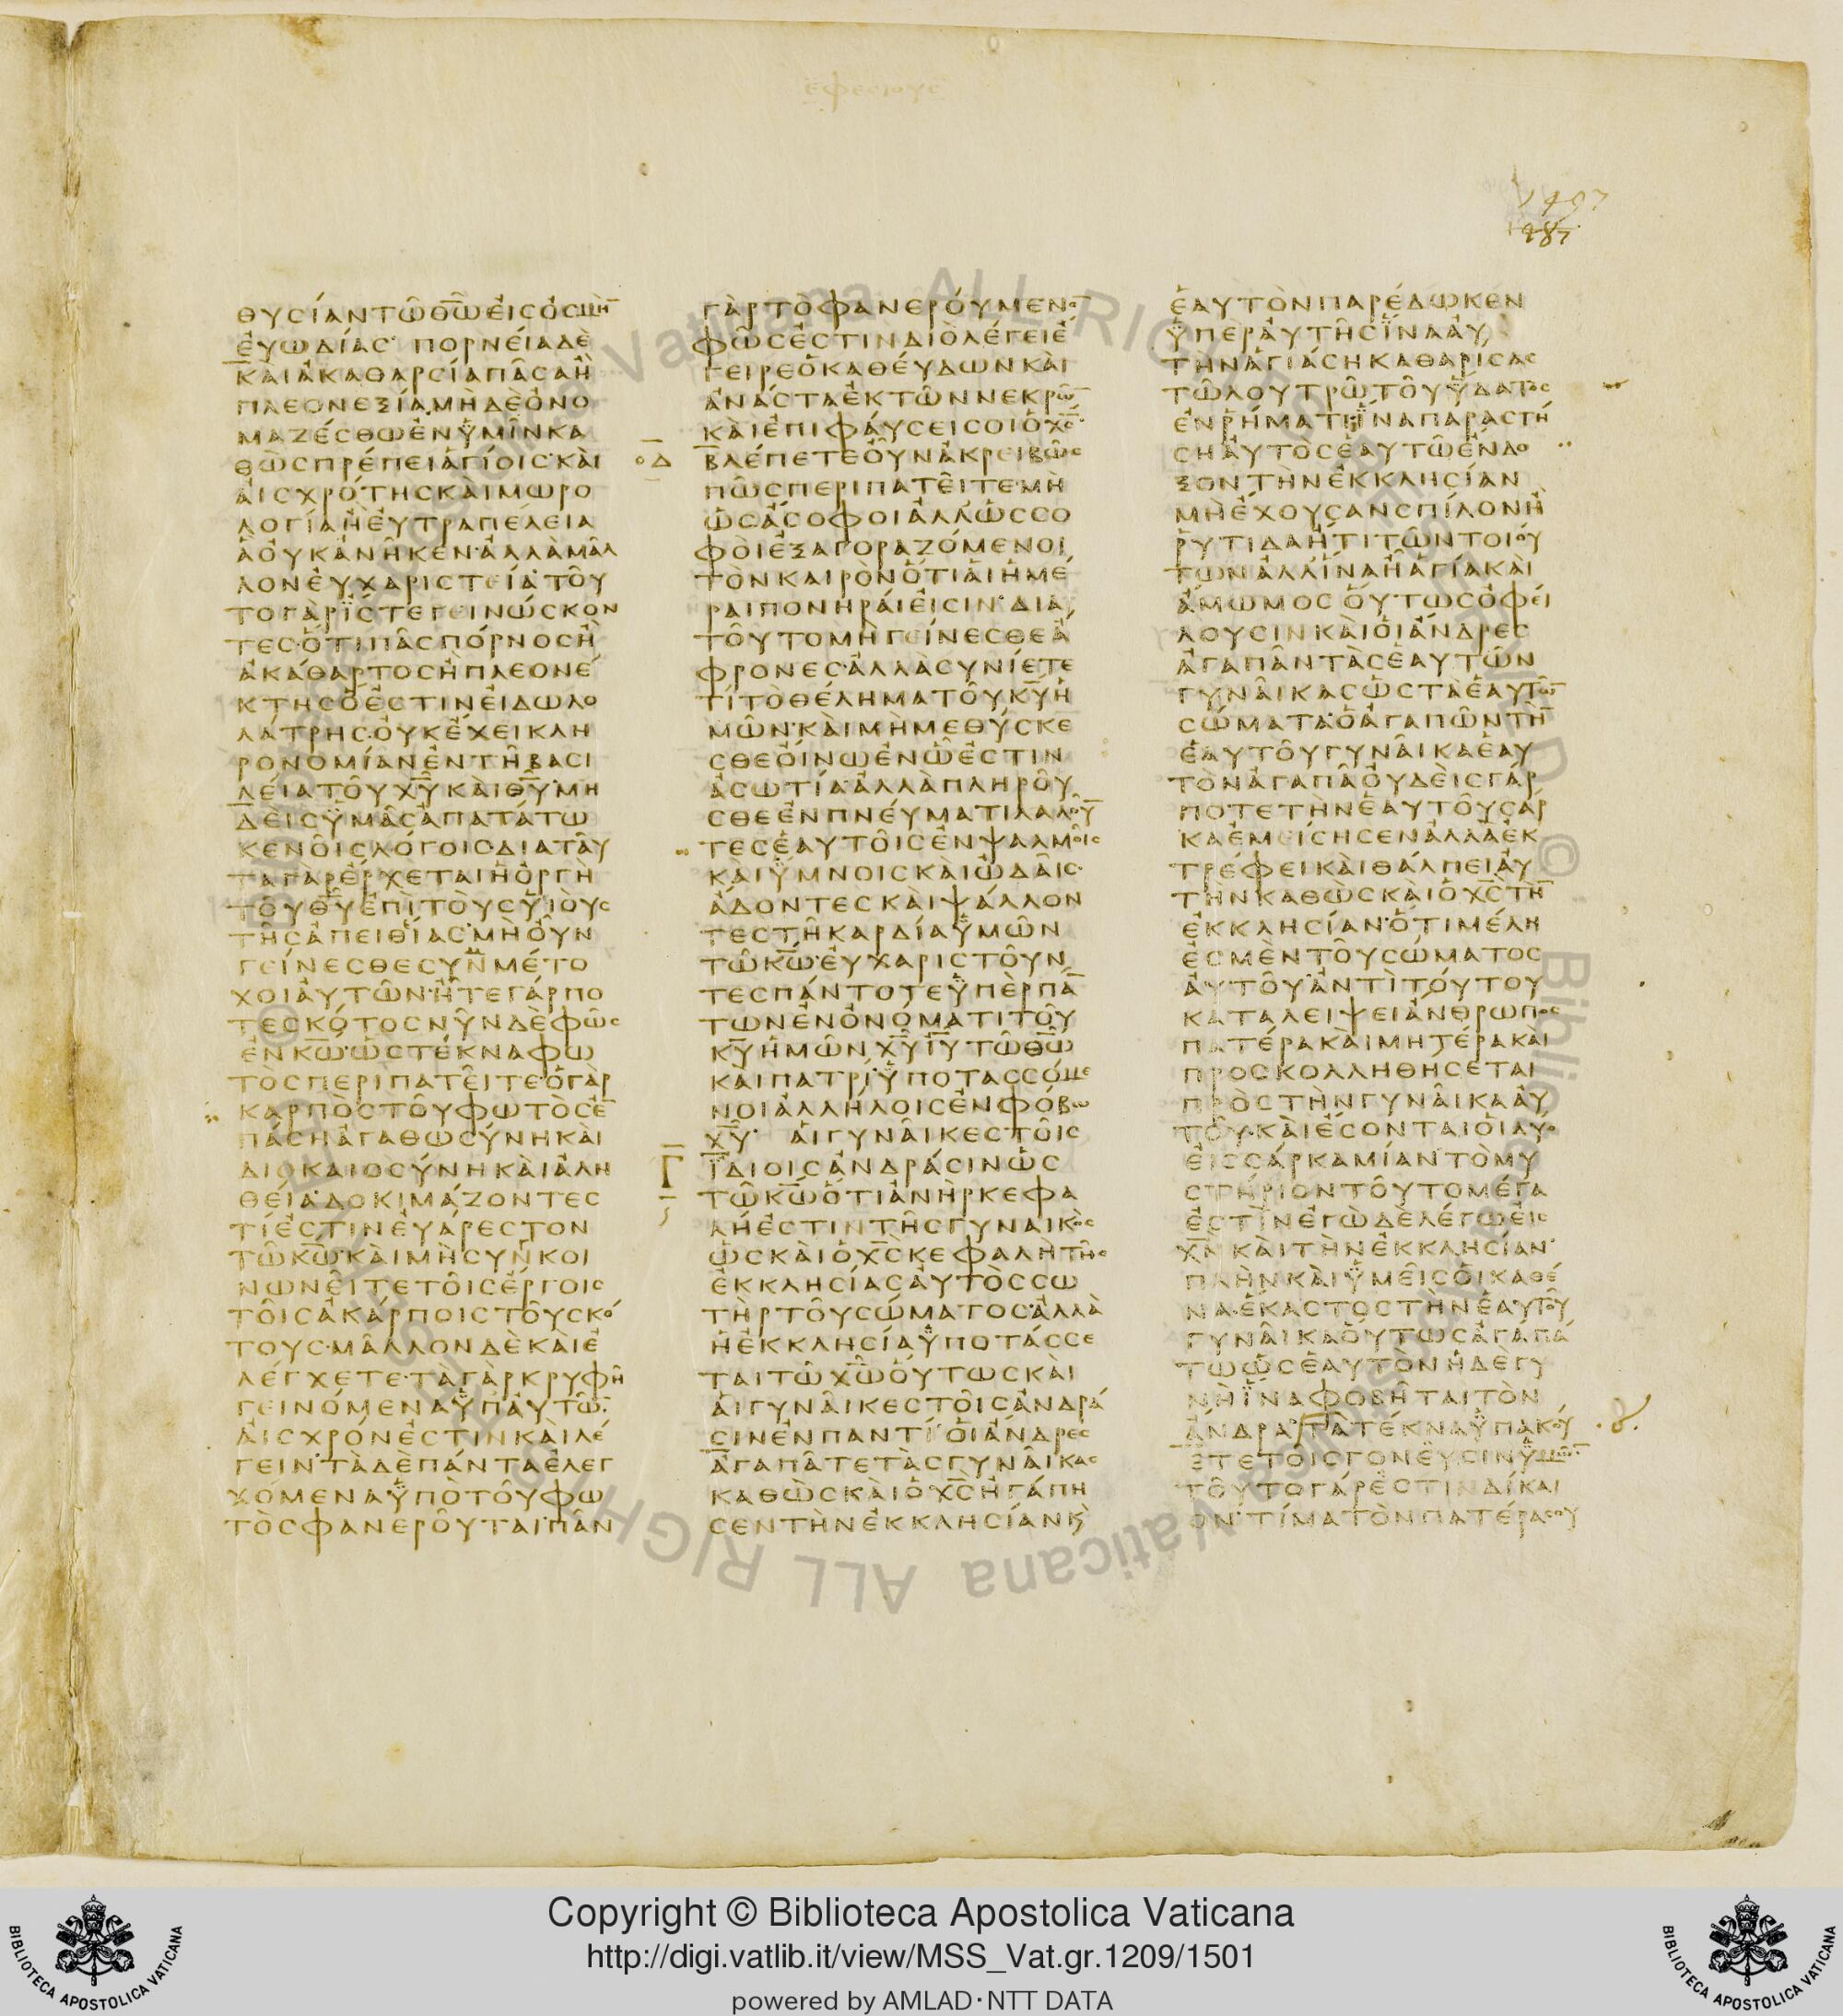 εφεσιους
1497
987
ΘΥΣΊΑΝΤΩ͂Θ̅Ω̅ΕἸΣὈΣΜῊ̅
ἘΥΩΔΊΑΣ· ΠΟΡΝΈΙΑΔῈ
ΚᾺΙἈΚΑΘΑΡΣΊΑΠΑ͂ΣΑῊ
ΠΛΕΟΝΕΞΊΑ·ΜΗΔῈὈΝΟ
ΜΑΖΈΣΘΩἘΝΫΜΙ͂ΝΚΑ
ΘῺΣΠΡΈΠΕΙἉΓΊΟΙΣ·ΚᾺΙ
ἈΙΣΧΡΌΤΗΣΚᾺΙΜΩΡΟ
ΛΟΓΊΑῊἘΥΤΡΑΠΕΛΕΙΑ
ἋὈΥΚἈΝΗ͂ΚΕΝ·ἈΛΛᾺΜΑ͂Λ
ΛΟΝἘΥΧΑΡΙΣΤΕΊΑ·ΤΟ͂Υ
ΤΟΓᾺΡΪ́ΣΤΕΓΕΙΝΏΣΚΟΝ
ΤΕΣ·ὍΤΙΠΑ͂ΣΠΌΡΝΟΣῊ
ἈΚΆΘΑΡΤΟΣῊΠΛΕΟΝΈ
ΚΤΗΣὍἘΣΤΙΝἘΙΔΩΛΟ
ΛΆΤΡΗΣ·ὈΥΚἜΧΕΙΚΛΗ
ΡΟΝΟΜΊΑΝἘΝΤΗ͂ΒΑΣΙ
ΛΈΙΑΤΟ͂ΥΧ̅Υ̅ΚᾺΙΘ̅Υ̅·ΜΗ
ΔῈΙΣΫΜΑ͂ΣἈΠΑΤΆΤΩ
ΚΕΝΟ͂ΙΣΛΌΓΟΙΣ·ΔΙΑΤΑ͂Υ
ΤΑΓΑΡἜΡΧΕΤΑΙἩὈΡΓῊ
ΤΟ͂ΥΘ̅Υ̅ἘΠῚΤΟῪΣΫἹΟῪΣ
ΤΗ͂ΣἈΠΕΙΘΊΑΣ·ΜῊὈΥ͂Ν
ΓΕΊΝΕΣΘΕΣΥΝΜΈΤΟ
ΧΟΙἈΥΤΩ͂Ν·ἮΤΕΓΆΡΠΟ
ΤΕΣΚΌΤΟΣΝΥ͂ΝΔῈΦΩ͂Σ
ἘΝΚ̅Ω̅·ὩΣΤΈΚΝΑΦΩ
ΤῸΣΠΕΡΙΠΑΤΕ͂ΙΤΕ·ὉΓᾺΡ
ΚΑΡΠῸΣΤΟ͂ΥΦΩΤῸΣἘ̅
ΠΆΣΗἈΓΑΘΩΣΎΝΗΚᾺΙ
ΔΙΟΚΑΙΟΣΎΝΗΚᾺΙἈΛΗ
ΘΕΊΑ·ΔΟΚΙΜΆΖΟΝΤΕΣ
ΤΊἘΣΤΙΝἘΥΆΡΕΣΤΟΝ
ΤΩ͂Κ̅Ω̅·ΚᾺΙΜῊΣΥΝΚΟΙ
ΝΩΝΕ͂ΙΤΕΤΟ͂ΙΣἜΡΓΟΙΣ
ΤΟ͂ΙΣἈΚΆΡΠΟΙΣΤΟ͂ΥΣΚΌ
ΤΟΥΣ·ΜΑ͂ΛΛΟΝΔῈΚᾺΙἘ
ΛΈΓΧΕΤΕ·ΤᾺΓᾺΡΚΡΥΦΗ͂
ΓΕΙΝΌΜΕΝΑΫΠἈΥΤΩ̅·
ἈΙΣΧΡΌΝἘΣΤΙΝΚᾺΙΛΈ
ΓΕΙΝ·ΤᾺΔῈΠΆΝΤΑἘΛΕΓ
ΧΌΜΕΝΑΫΠῸΤΟ͂ΥΦΩ
ΤῸΣΦΑΝΕΡΟ͂ΥΤΑΙ·ΠΑ͂Ν
ΓᾺΡΤῸΦΑΝΕΡΌΥΜΕΝΟ̅
ΦΩ͂ΣἘΣΤΙΝΔΙῸΛΈΓΕΙἜ
ΓΕΙΡΕὉΚΑΘΈΥΔΩΝΚᾺΙ
ἈΝΆΣΤΑἘΚΤΩ͂ΝΝΕΚΡΩ̅
ΚᾺΙἘΠΙΦΆΥΣΕΙΣΟΙὉΧ̅Σ̅·
ΟΔ ΒΛΈΠΕΤΕὈΥ͂ΝἈΚΡΕΙΒΩ͂Σ
ΠΩ͂ΣΠΕΡΙΠΑΤΕ͂ΙΤΕ·ΜῊ
ὩΣἌΣΟΦΟΙἈΛΛὩΣΣΟ
ΦΟΊἘΞΑΓΟΡΑΖΌΜΕΝΟΙ
ΤῸΝΚΑΙΡῸΝὍΤΙἉΙἩΜΈ
ΡΑΙΠΟΝΗΡΆΙἘΙΣΙΝ·ΔΙΑ
ΤΟ͂ΥΤΟΜῊΓΕΊΝΕΣΘΕἌ
ΦΡΟΝΕΣ·ἈΛΛᾺΣΥΝΊΕΤΕ
ΤΊΤῸΘΈΛΗΜΑΤΟ͂ΥΚ̅Υ̅Ἡ
ΜΩ͂Ν·ΚᾺΙΜῊΜΕΘΎΣΚΕ
ΣΘΕὈΊΝΩἘΝΩ͂ἘΣΤΙΝ
ἈΣΩΤΊΑ·ἈΛΛᾺΠΛΗΡΟ͂Υ
ΣΘΕἘΝΠΝΈΥΜΑΤΙΛΑΛΟ͂Υ̅
ΤΕΣἙΑΥΤΟ͂ΙΣἘΝΨΑΛΜΟ͂ΙΣ
ΚᾺΙΫ́ΜΝΟΙΣΚᾺΙὨΔΑ͂ΙΣ·
ἌΔΟΝΤΕΣΚᾺΙΨΆΛΛΟΝ
ΤΕΣΤΗ͂ΚΑΡΔΊΑΫΜΩ͂Ν
ΤΩ͂Κ̅Ω̅·ἘΥΧΑΡΙΣΤΟ͂ΥΝ
ΤΕΣΠΆΝΤΟΤΕΫΠῈΡΠΆ̅
ΤΩΝἘΝὈΝΌΜΑΤΙΤΟ͂Υ
Κ̅Υ̅ἩΜΩ͂ΝΧ̅Υ̅Ι̅Υ̅ΤΩ͂Θ̅Ω̅
ΚᾺΙΠΑΤΡΊ·ΫΠΟΤΑΣΣΌΜΕ
ΝΟΙἈΛΛΉΛΟΙΣἘΝΦΌΒΩ
Χ̅Υ̅· ἉΙΓΥΝΑ͂ΙΚΕΣΤΟ͂ΙΣ
Γ ΪΔΊΟΙΣἈΝΔΡΆΣΙΝὩΣ
ΤΩ͂Κ̅Ω̅ὍΤΙἈΝῊΡΚΕΦΑ
ΛΉἘΣΤΙΝΤΗ͂ΣΓΥΝΑΙΚῸΣ
ὩΣΚᾺΙὉΧ̅Σ̅ΚΕΦΑΛῊΤΗ͂Σ
ἘΚΚΛΗΣΊΑΣἈΥΤῸΣΣΩ
ΤῊΡΤΟ͂ΥΣΏΜΑΤΟΣ·ἈΛΛᾺ
ἩἘΚΚΛΗΣΊΑΫΠΟΤΆΣΣΕ
ΤΑΙΤΩ͂Χ̅Ω̅ὍΥΤΩΣΚᾺΙ
ἉΙΓΥΝΑ͂ΙΚΕΣΤΟ͂ΙΣἈΝΔΡΆ
ΣΙΝἘΝΠΑΝΤΊ·ὉΙἌΝΔΡΕΣ
ἈΓΑΠΑ͂ΤΕΤᾺΣΓΥΝΑ͂ΙΚΑΣ
ΚΑΘῺΣΚᾺΙὉΧ̅Σ̅ἨΓΆΠΗ
ΣΕΝΤῊΝἘΚΚΛΗΣΊΑΝΚ̀
ἙΑΥΤῸΝΠΑΡΈΔΩΚΕΝ
ΫΠΕΡἈΥΤΗ͂ΣΪΝΑἈΥ
ΤῊΝἉΓΙΆΣΗΚΑΘΑΡΊΣΑΣ
ΤΩ͂ΛΟΥΤΡΩ͂ΤΟ͂ΥΫ́ΔΑΤΟΣ
ἘΝΡΉΜΑΤΙΪ́ΝΑΠΑΡΑΣΤΉ
ΣΗἈΥΤῸΣἙΑΥΤΩ͂ἜΝΔΟ
ΞΟΝΤῊΝἘΚΚΛΗΣΊΑΝ
ΜῊἜΧΟΥΣΑΝΣΠΊΛΟΝῊ
ΡΥΤΙΔΑἬΤΙΤΩ͂ΝΤΟΙΟΎ
ΤΩΝἈΛΛἽΝΑΗ͂ἉΓΊΑΚᾺΙ
ἌΜΩΜΟΣ ὍΥΤΩΣὈΦΕΊ
ΛΟΥΣΙΝΚᾺΙὉΙἌΝΔΡΕΣ
ἈΓΑΠΑ͂ΝΤᾺΣἙΑΥΤΩ͂Ν
ΓΥΝΑ͂ΙΚΑΣὩΣΤᾺἙΑΥΤΩ̅
ΣΏΜΑΤΑ·ὉἈΓΑΠΩ͂ΝΤῊ̅
ἙΑΥΤΟ͂ΥΓΥΝΑ͂ΙΚΑἙΑΥ
ΤῸΝἈΓΑΠΑ͂ὈΥΔῈΙΣΓΆΡ
ΠΟΤΕΤῊΝἙΑΥΤΟ͂ΥΣΆΡ
ΚΑἘΜΕΊΣΗΣΕΝἈΛΛἈἘΚ
ΤΡΈΦΕΙΚᾺΙΘΆΛΠΕΙἈΥ
ΤῊΝΚΑΘῺΣΚᾺΙὉΧ̅Σ̅ΤῊ̅
ἘΚΚΛΗΣΊΑΝ·ὍΤΙΜΈΛΗ
ἘΣΜῈΝΤΟ͂ΥΣΏΜΑΤΟΣ
ἈΥΤΟ͂Υ·ἈΝΤῚΤΟΎΤΟΥ
ΚΑΤΑΛΕΙΨΕΙἌΝΘΡΩΠΟΣ
ΠΑΤΈΡΑΚᾺΙΜΗΤΈΡΑΚᾺΙ
ΠΡΟΣΚΟΛΛΗΘΗΣΕΤΑΙ
ΠΡῸΣΤῊΝΓΥΝΑ͂ΙΚΑἈΥ
ΤΟ͂Υ·ΚᾺΙἜΣΟΝΤΑΙὉΙΔΎΟ
ἘΙΣΣΆΡΚΑΜΊΑΝ·ΤῸΜΥ
ΣΤΉΡΙΟΝΤΟ͂ΥΤΟΜΈΓΑ
ἘΣΤῚΝἘΓῺΔῈΛΈΓΩἘΙΣ
Χ̅Ν̅ΚᾺΙΤῊΝἘΚΚΛΗΣΊΑΝ·
ΠΛῊΝΚᾺΙΫΜΕ͂ΙΣὉΙΚΑΘΈ
ΝΑ·ἝΚΑΣΤΟΣΤῊΝἙΑΥΤΟ͂Υ
ΓΥΝΑ͂ΙΚΑὍΥΤΩΣἈΓΑΠΆ
ΤΩὩΣἙΑΥΤῸΝἩΔῈΓΥ
ΝῊΪ́ΝΑΦΟΒΗ͂ΤΑΙΤῸΝ
ἌΝΔΡΑ·ΤᾺΤΈΚΝΑΫΠΑΚΟΎ
ΕΤΕΤΟΙΣΓΟΝΕΥ͂ΣΙΝΫΜΩ̅·
ΤΟ͂ΥΤΟΓΆΡἘΣΤΙΝΔΊΚΑΙ
ΟΝ·ΤΊΜΑΤῸΝΠΑΤΈΡΑΣΟΥ
Copyright © Biblioteca Apostolica Vaticana
http://digi.vatlib.it/view/MSS_Vat.gr.1209/1501
powered by AMLAD·NTT DATA
BIBLIOTECA APOSTOLICA VATICANA
BIBLIOTECA APOSTOLICA VATICANA